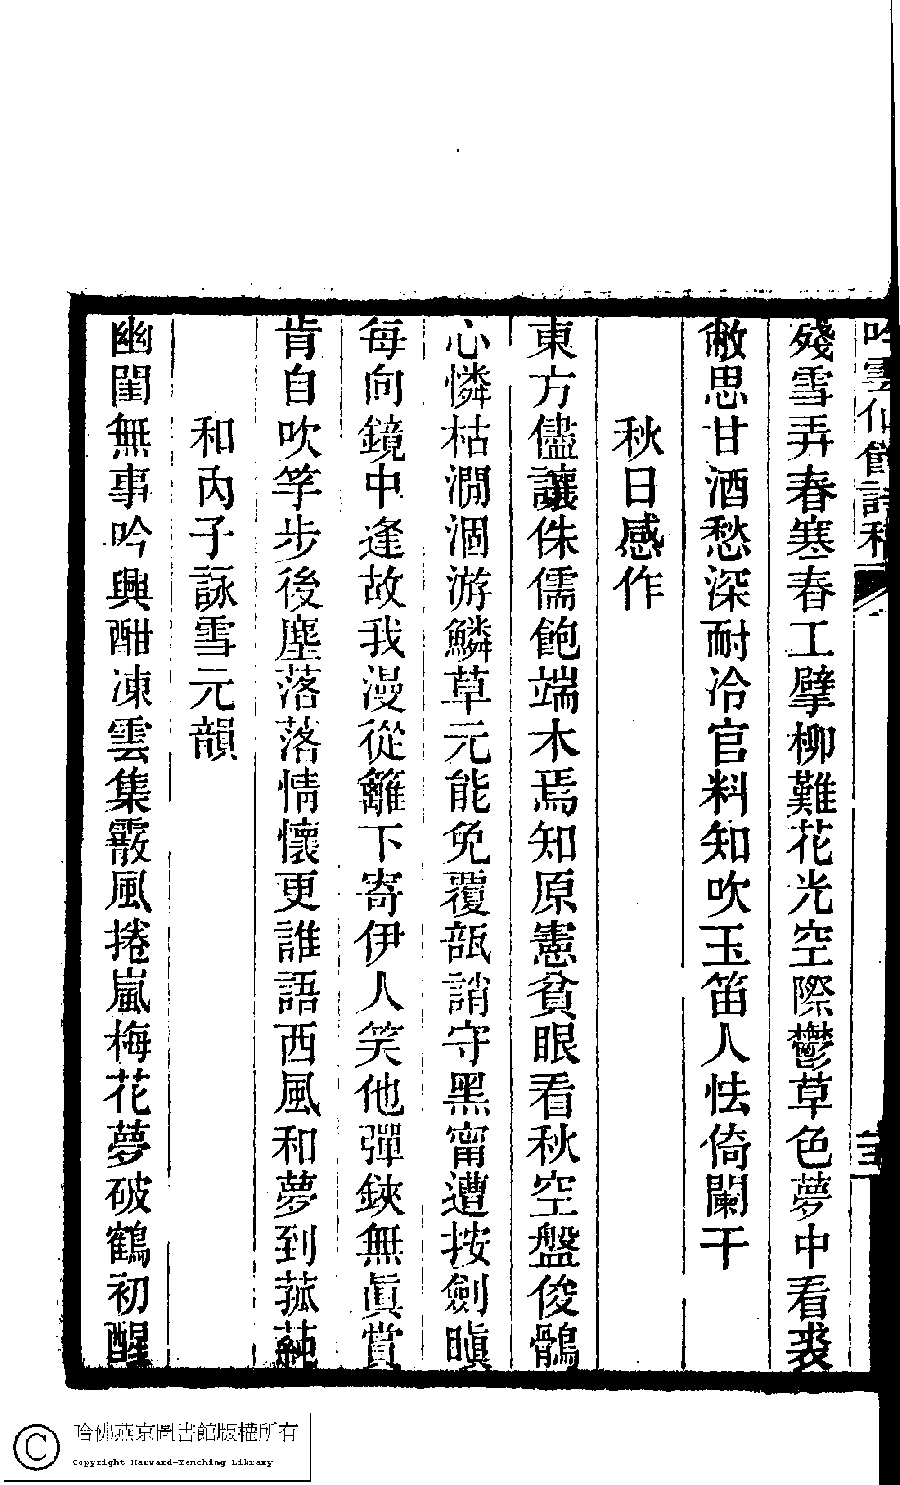 吟雲仙館詩稿
殘雪弄春寒春工擘柳難花光空際鬱草色夢中看裘
敝思甘酒愁深耐冷官料知吹玉笛人怯倚闌干
秋日感作
東方儘讓侏儒飽端木焉知原憲貧眼看秋空盤俊鶻
心憐枯澗涸游鱗草元能免覆瓿誚守黑甯遭按劍瞋
每向鏡中逢故我漫從籬下寄伊人笑他彈鋏無眞賞
肯自吹竽步後塵落落情懷更誰語西風和夢到菰蒓
和內子詠雪元韻
幽閨無事吟興酣凍雲集霰風捲嵐梅花夢破鶴初醒
哈佛燕京圖書館版權所有
Copyright Harvard-Yenching Library